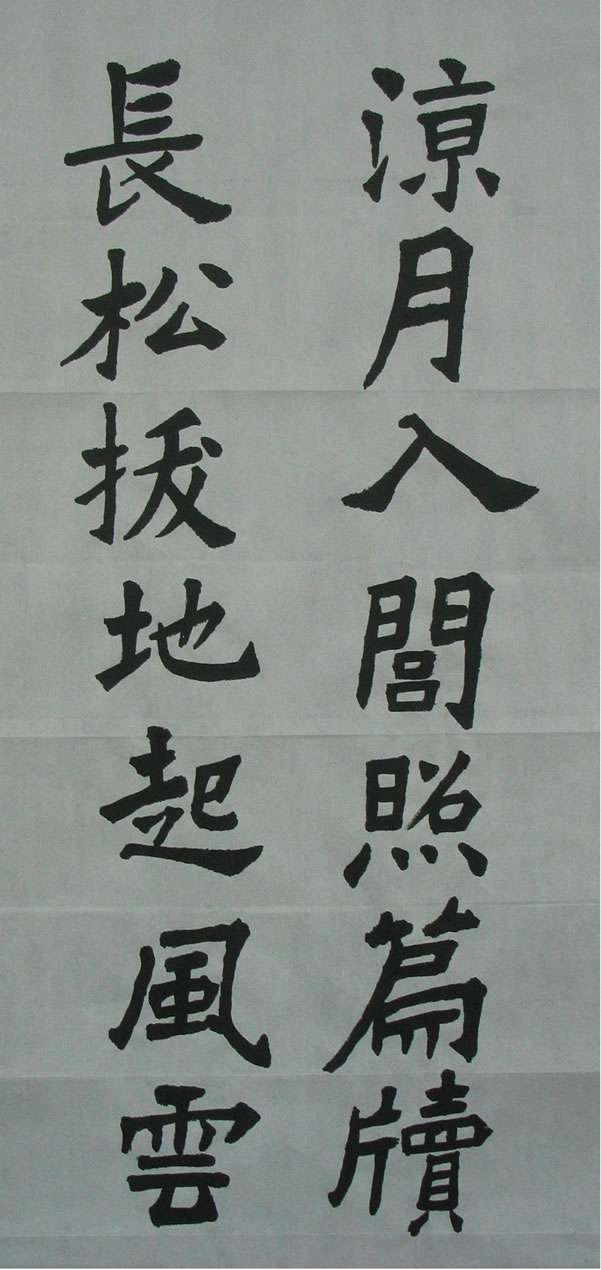 涼月入閭照篇牘
長松拔地起風雲